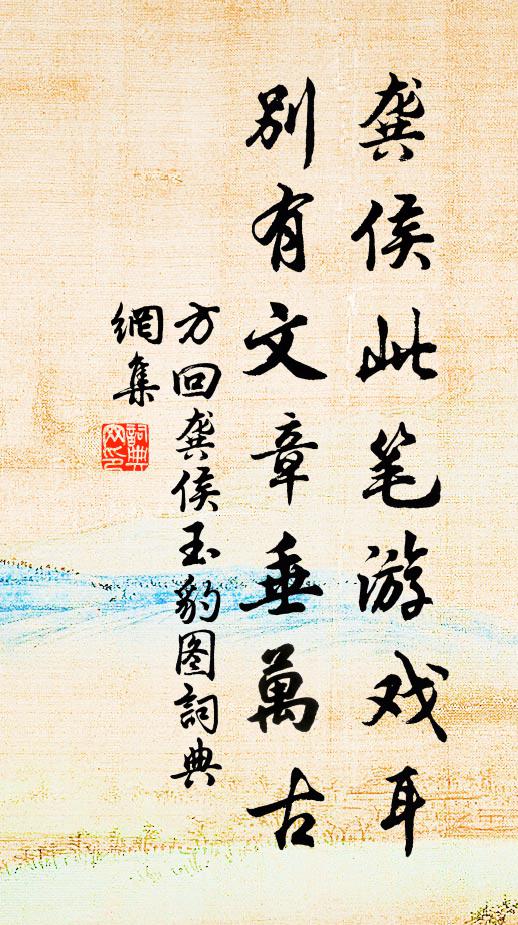 龚侯此笔游戏耳
别有文章垂萬古
方回龚侯玉豹图詞典
網集
詞典